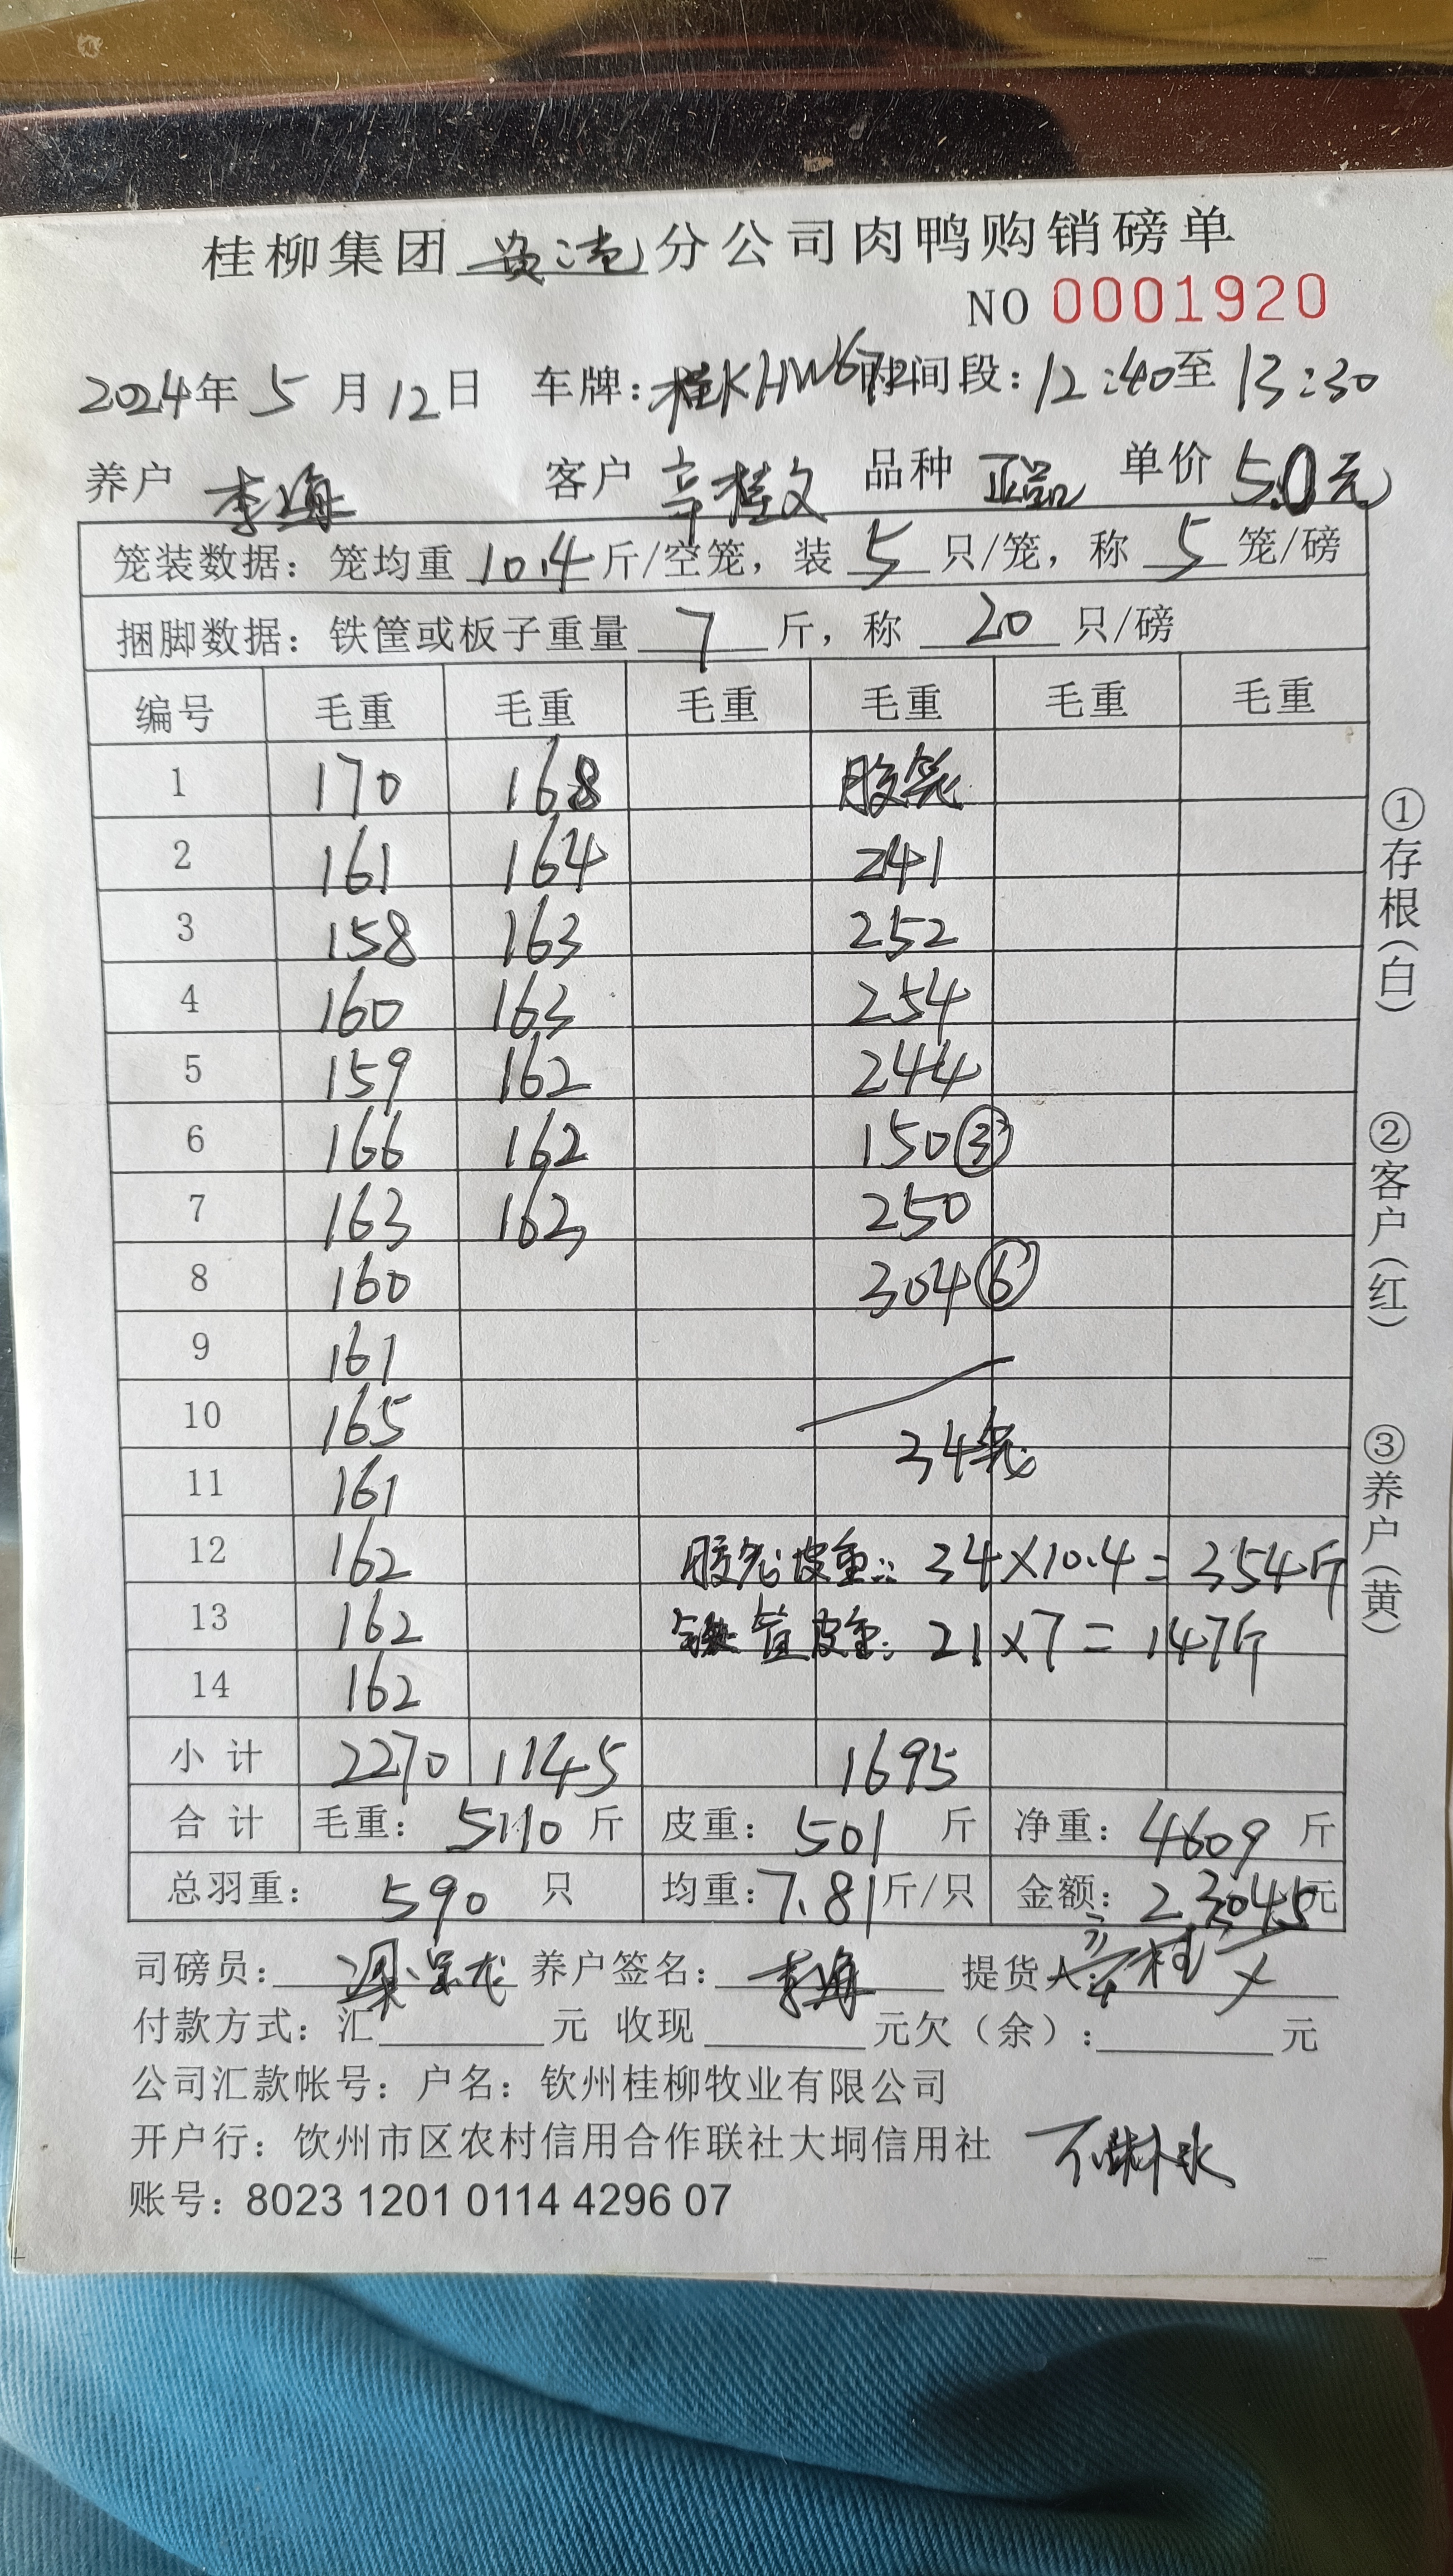 桂柳集团贵港分公司肉鸭购销磅单
NO 0001920
2024年5月12日 车牌:桂KHW672 时间段:12:40至13:30
养户 李海 客户 辛桂文 品种 正品 单价 5.0元
笼装数据:笼均重 10.4 斤/空笼,装 5 只/笼,称 5 笼/磅
捆脚数据:铁筐或板子重量 7 斤,称 20 只/磅
编号 毛重 毛重 毛重 毛重 毛重 毛重
1 170 168 胶笼
2 161 164 241
3 158 163 252
4 160 163 254
5 159 162 244
6 166 162 150③
7 163 163 250
8 160 304⑥
9 161
10 165 34笼
11 161
12 162 胶笼皮重: 34×10.4=354斤
13 162 铁筐皮重: 21×7=147斤
14 162
小计 2270 1145 1695
合计 毛重: 5110 斤 皮重: 501 斤 净重: 4609 斤
总羽重: 590 只 均重:7.81斤/只 金额: 23045元
司磅员: 养户签名: 李海 提货人: 辛桂文
付款方式:汇 元 收现 元欠(余): 元
公司汇款帐号:户名:钦州桂柳牧业有限公司
开户行:饮州市区农村信用合作联社大垌信用社
账号:8023 1201 0114 4296 07
①存根(白)
②客户(红)
③养户(黄)